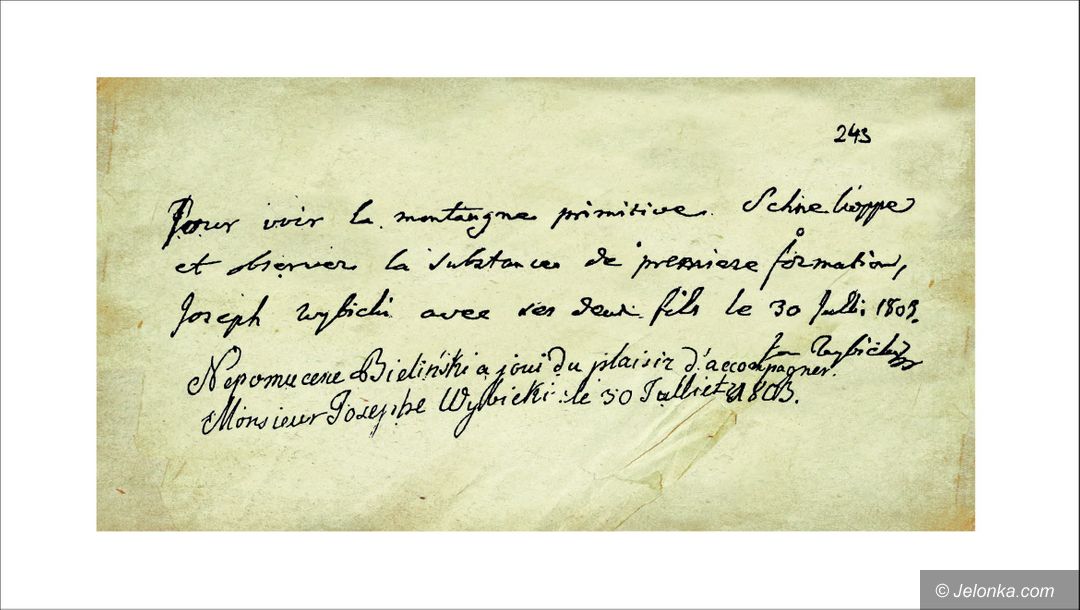 243
Pour voir la montaugne primitive Schneekoppe
et observer la substance de premiere formation,
Joseph Wybicki avec ses deux fils le 30 Julli 1803.
Jan Wybicki
Nepomucene Bieliński a joui du plaisir d'accompagner
Monsieur Josephe Wybicki le 30 Julliet 1803.
© Jelonka.com